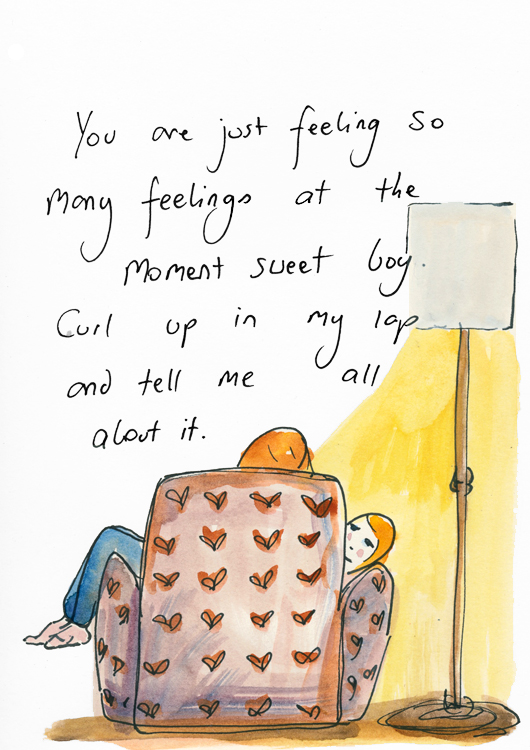 You are just feeling so
many feelings at the
moment sweet boy.
Curl up in my lap
and tell me all
about it.